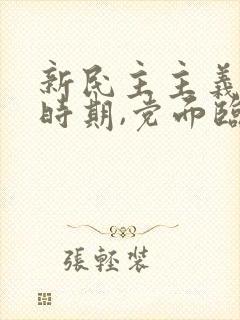 新民主主義
時期,党面臨
張輕裝